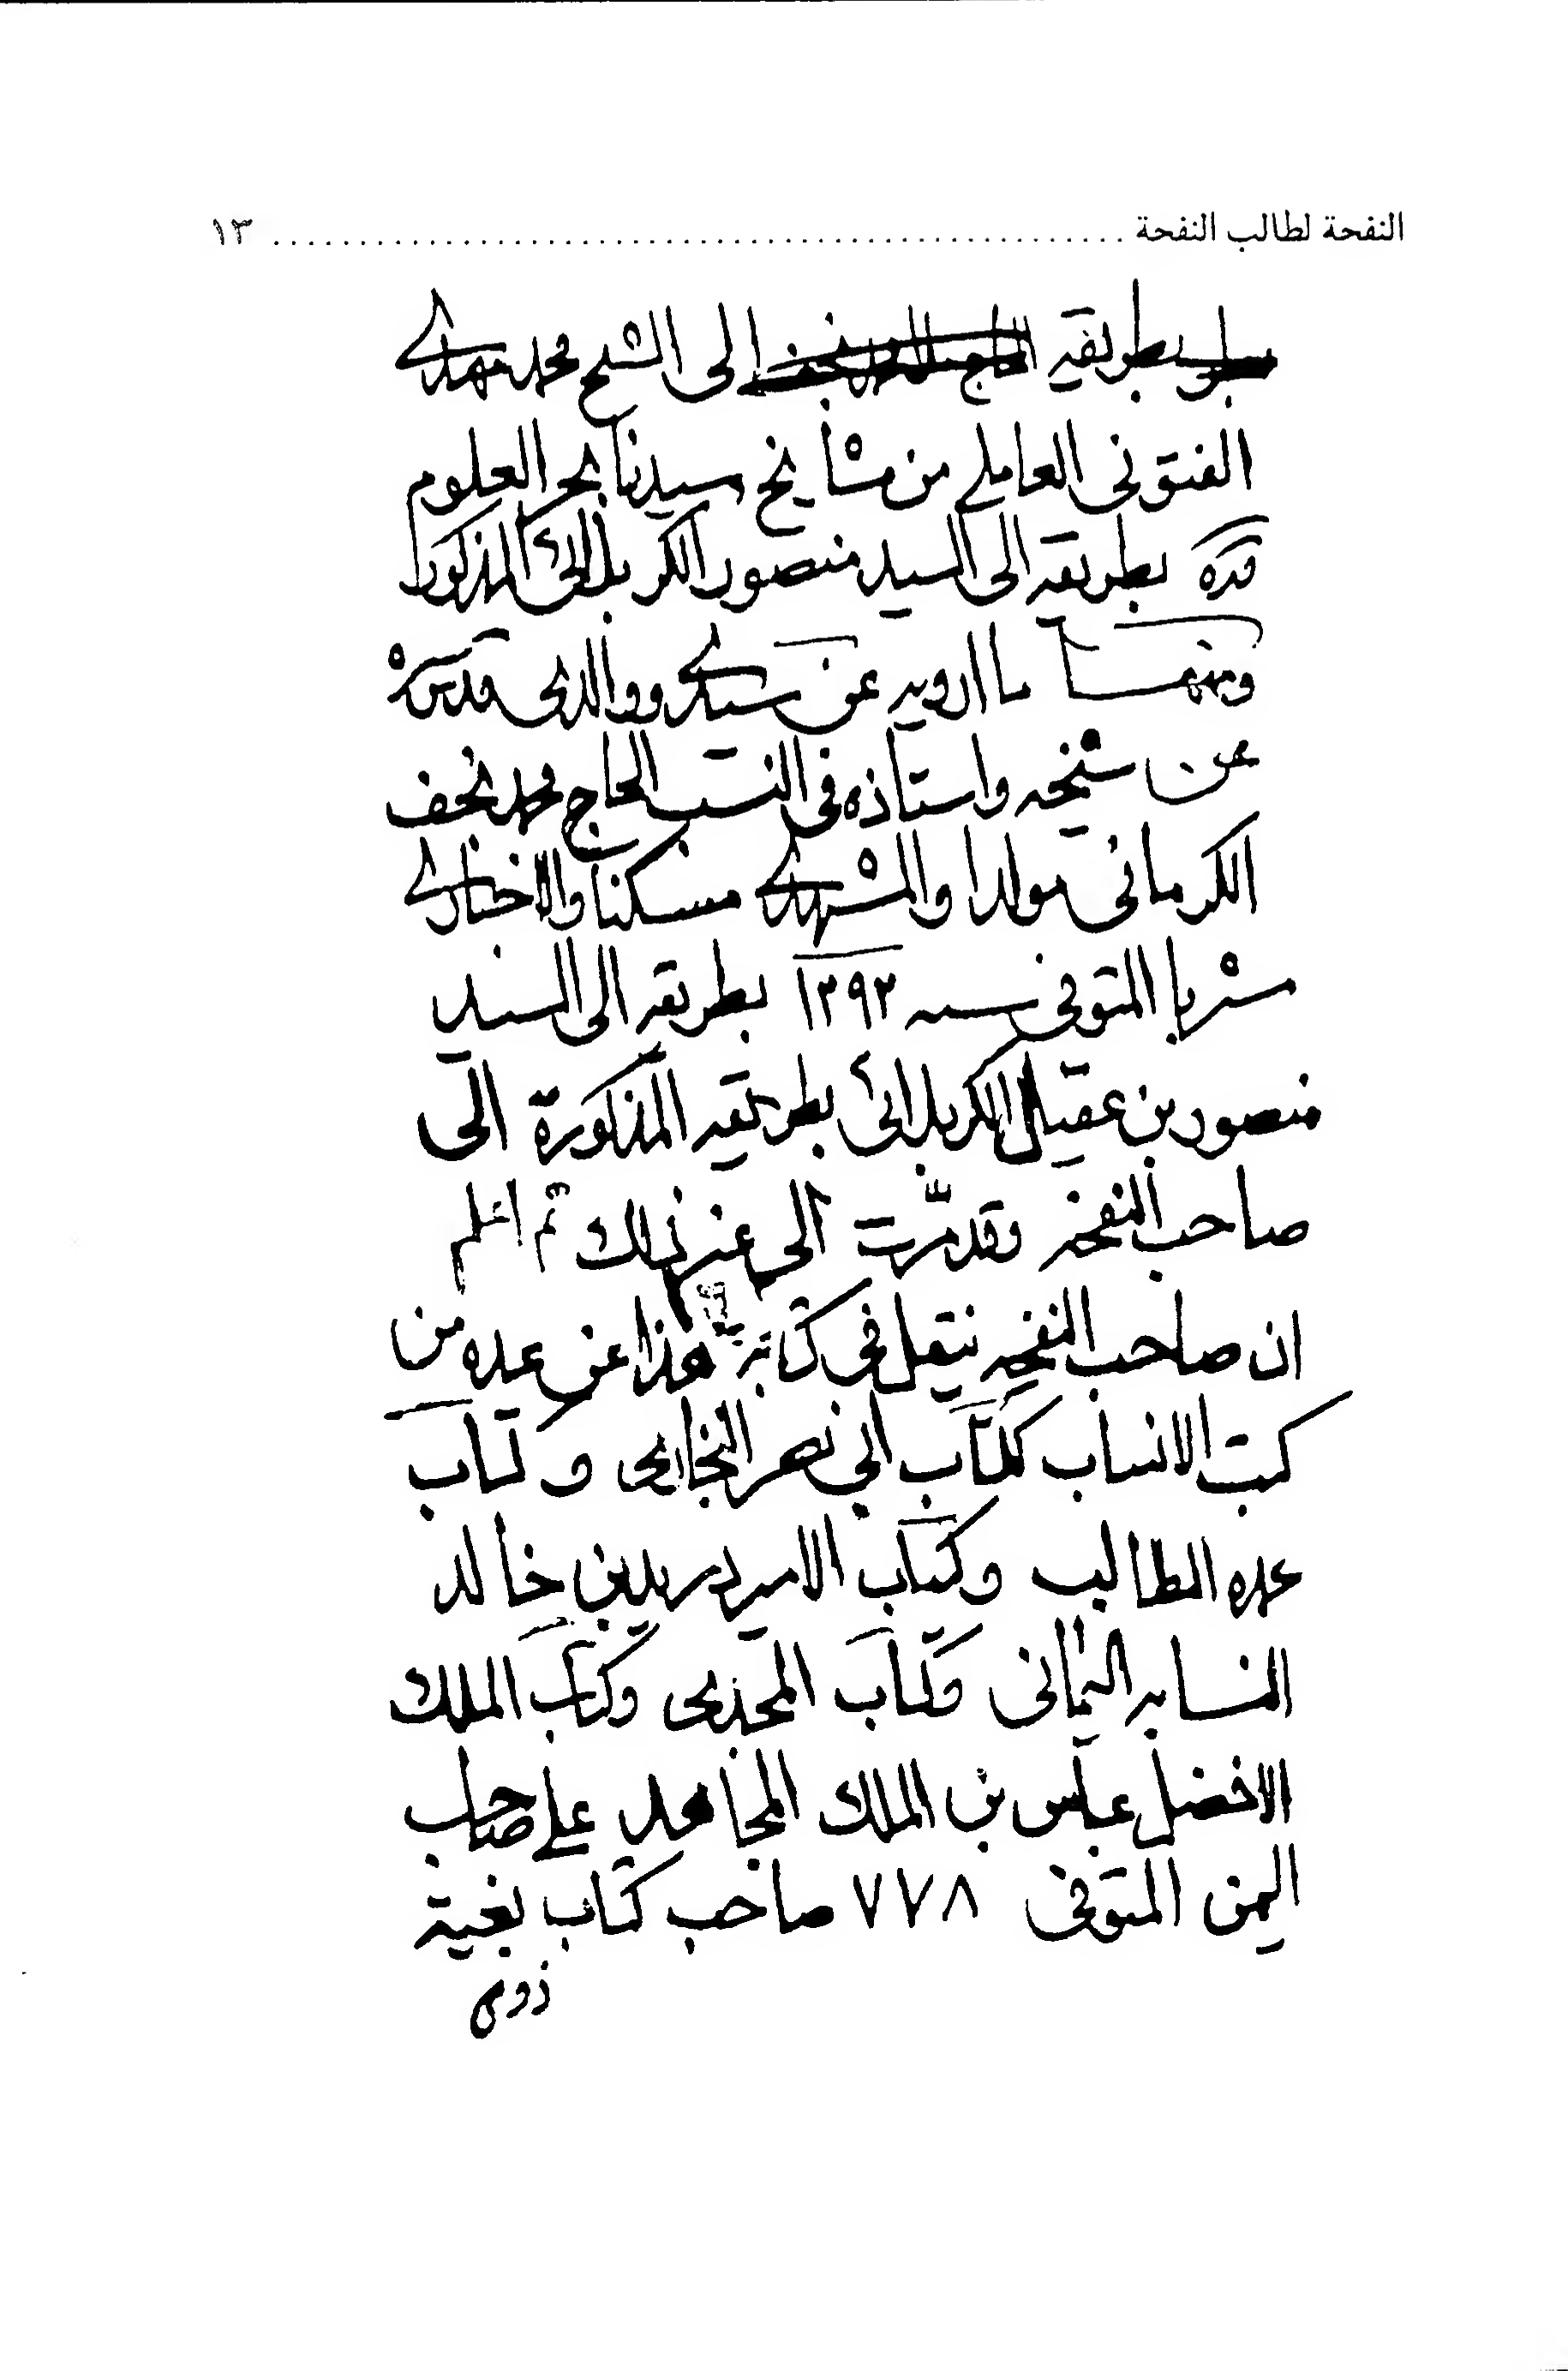 النفحة لطالب النفحة ................................................ ١٣
بطريقه الى الشيخ محمد مهدي
الفتوني العاملي من مشايخ سيدنا بحر العلوم
قده بطريقه الى السيد منصور الكربلائي المذكور
ومنها ما ارويه عن سيدي ووالدي قدس سره
عن شيخه واستاذه في النسب الحاج محمد نجف
الكرماني مولدا والمشهدي مسكنا والاخباري
مشربا المتوفى سنه ١٢٩٢ بطريقه الى السيد
منصور بن عقيل الكربلائي بطريقه المذكورة الى
صاحب النفحه وقد مرّت الى غير ذلك ثم اعلم
ان صاحب النفحه ينقل في كتابه هذا عن عده من
كتب الانساب ككتاب ابي نصر البخاري وكتاب
عمده الطالب وكتاب الامير دريد بن خالد
النسابه اليماني وكتاب المجدي وكتاب الملك
الافضل عباس بن الملك المجاهد علي صاحب
اليمن المتوفى ٧٧٨ صاحب كتاب بغية
ذوي